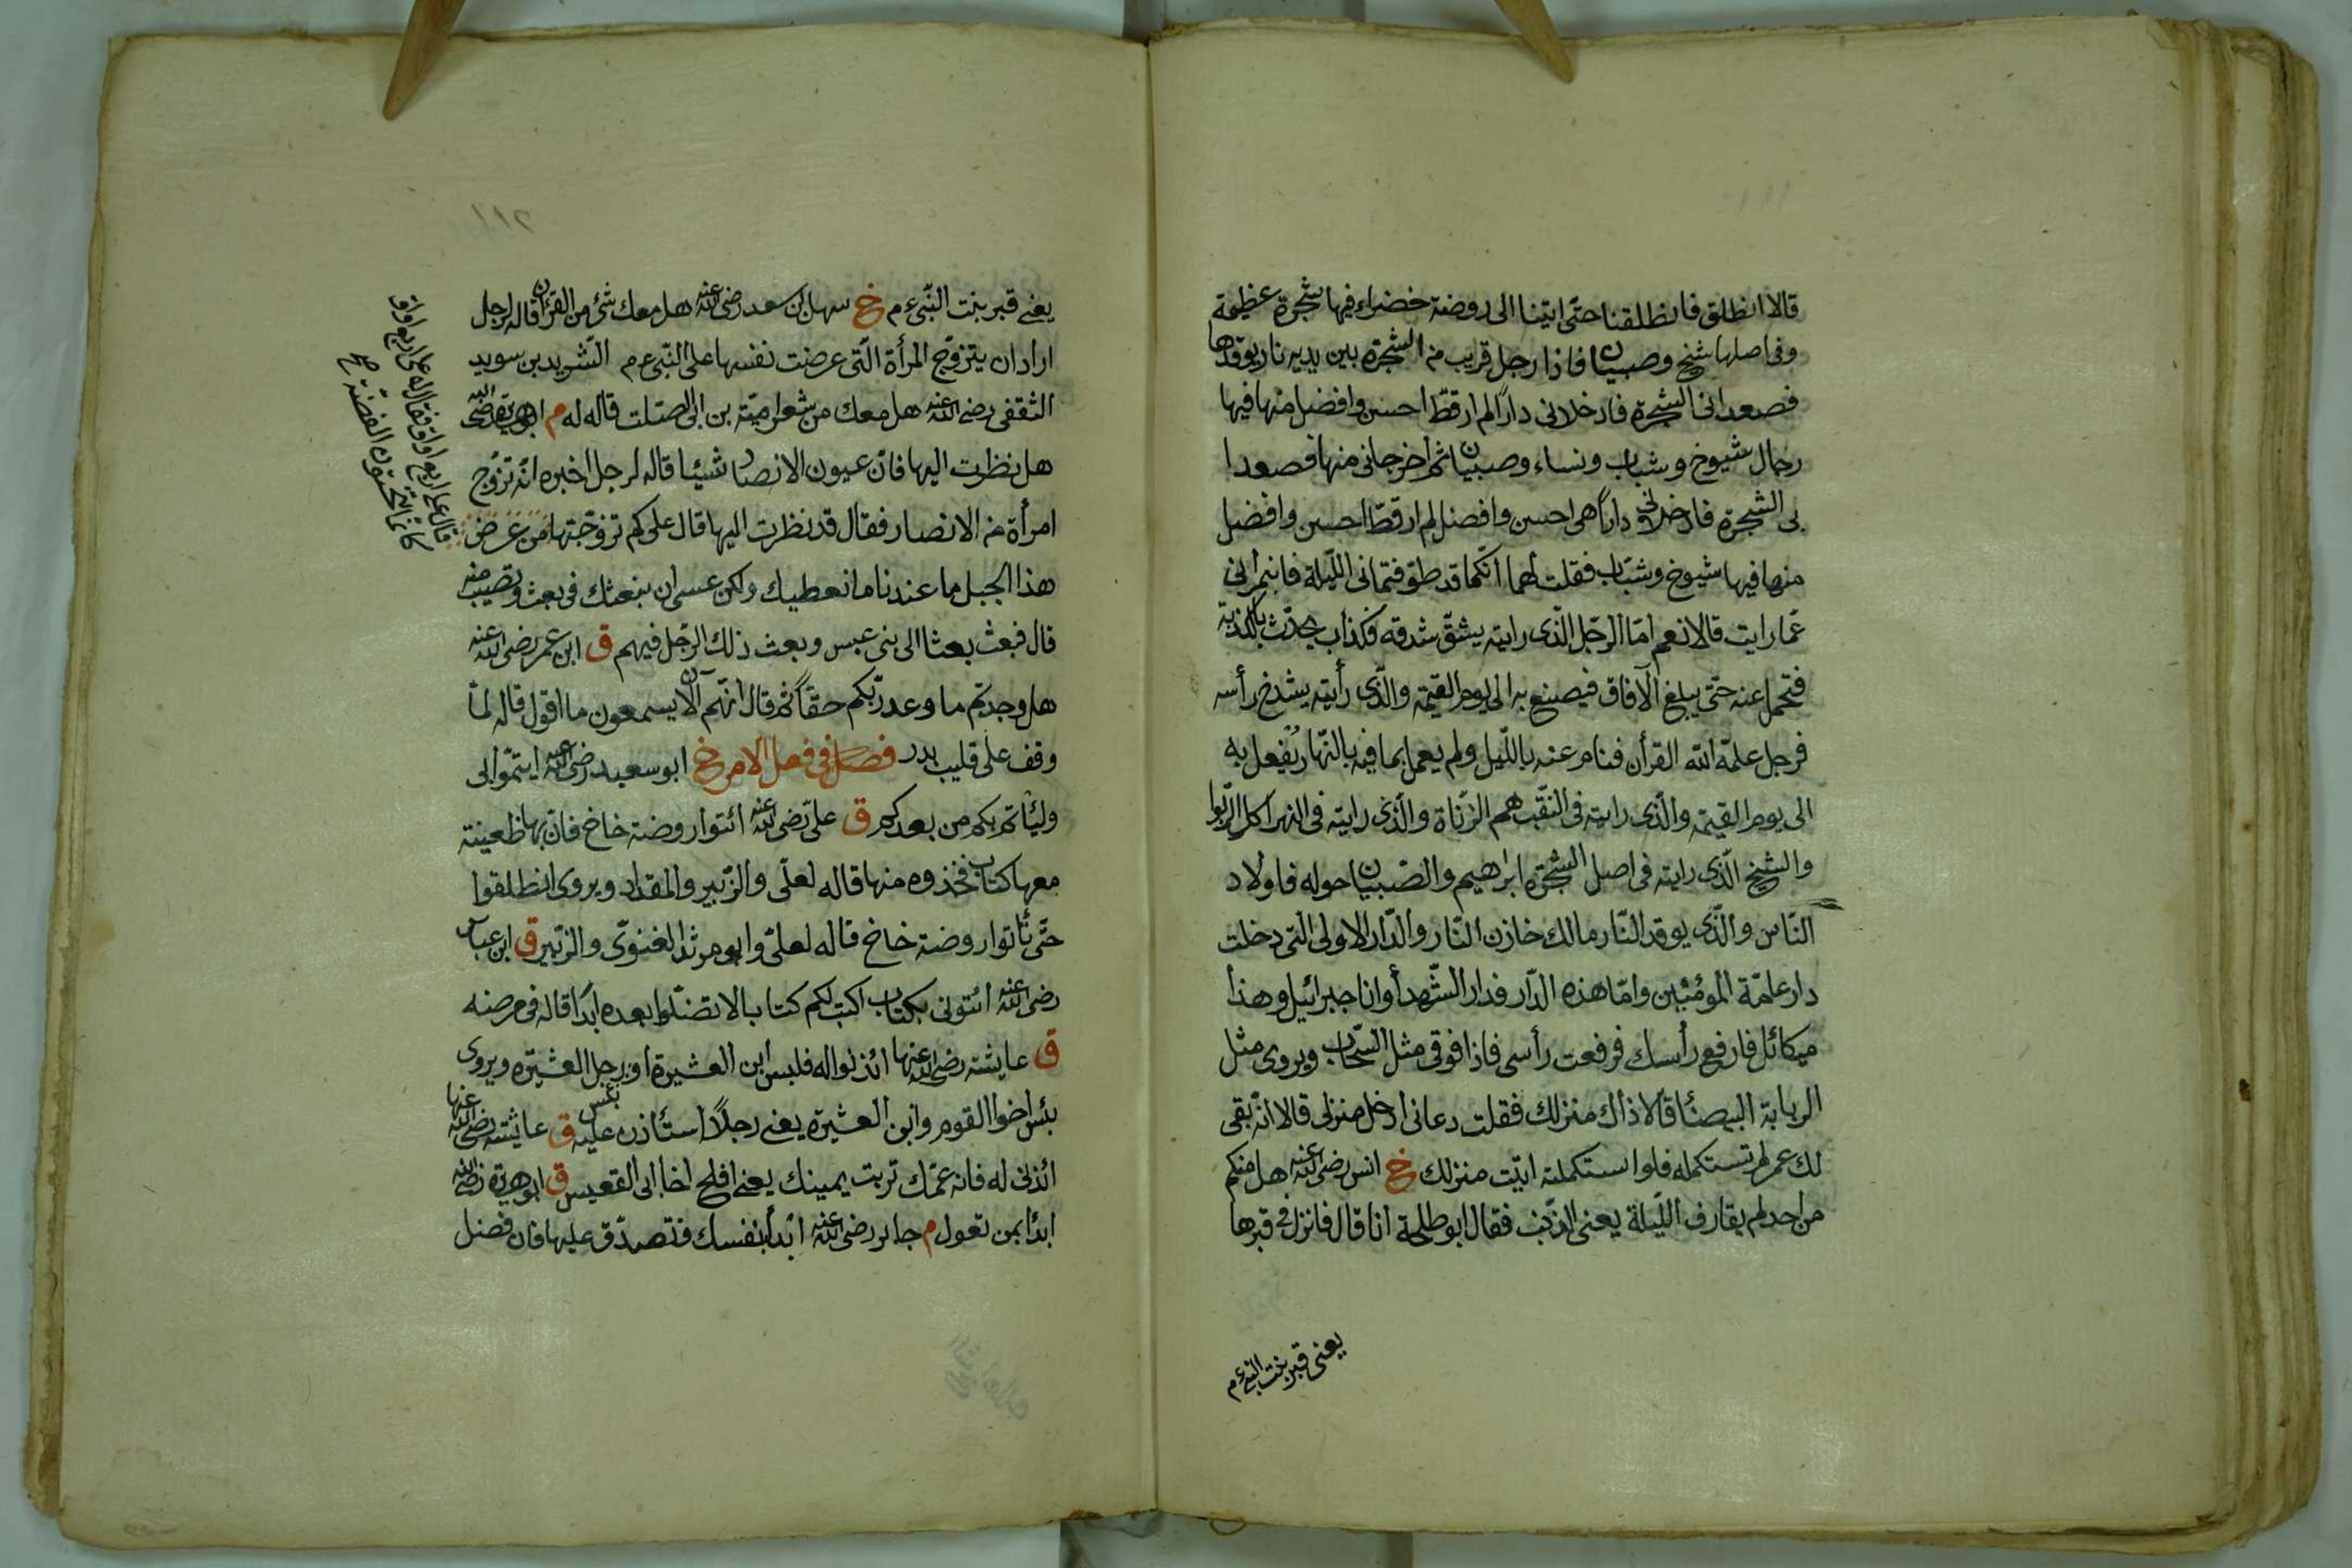 قالا انطلق فانطلقنا حتى اتينا الى روضة خضراء فيها شجرة عظيمة
وفى اصلها شيخ وصبيان فاذا رجل قريب من الشجرة بين يديه نار يوقدها
فصعدا انى الشجرة فادخلانى دارًا لم ارقط احسن وافضل منها فيها
رجال شيوخ وشباب ونساء وصبيان ثم اخرجانى منها فصعدا
بى الشجرة فادخلانى دارًا هى احسن وافضل لم ارقط احسن وافضل
منها فيها شيوخ وشبّاب فقلت لهما انّكما قد طوّفتمانى اللّيلة فاخبرانى
عمّا رايت قالا نعم امّا الرّجل الّذى رايته يشقّ شدقه فكذاب يحدّث بالكذبة
فتحمل عنه حتّى يبلغ الآفاق فيصنع به الى يوم القيمة والّذى رأيته يشدخ رأسه
فرجل علّمه الله القرأن فنام عنه باللّيل ولم يعمل بما فيه بالنّهار يُفعل به
الى يوم القيمة والّذى رايته فى النّقب هم الزّناة والّذى رايته فى النهر اكل الرّبوا
والشيخ الّذى رايته فى اصل الشجرة ابرٰهيم والصّبيان حوله فاولاد
النّاس والّذى يوقد النّار مالك خازن النّار والدّار الاولى الّتى دخلت
دار عامّة المؤمنين وامّا هذه الدّار فدار الشّهدأ وانا جبرائيل وهذا
ميكائل فارفع رأسك فرفعت رأسى فاذا فوقى مثل السّحاب ويروى مثل
الربابة البيضأ قالا ذاك منزلك فقلت دعانى ادخل منزلى قالا انّه بقى
لك عمر لم تستكمله فلو استكملته اتيت منزلك خ انس رضى الله عنه هل منكم
من احد لم يقارف اللّيلة يعنى الذّنب فقال ابو طلحة انا قال فانزل فى قبرها
يعنى قبر بنت النبى ءم
يعنى قبر بنت النّبى ءم خ سهل بن سعد رضى الله عنه هل معك شئ من القرآن قاله لرجل
اراد ان يتزوّج المرأة الّتى عرضت نفسها على النّبى ءم الشّريد بن سويد
الثقفى رضى الله عنه هل معك من شعر اميّة بن ابى الصّلت قاله له م ابو هريرة رضى الله
هل نظرت اليها فانّ عيون الانصار شيئا قاله لرجل اخبره انّه تزوّج
امرأة من الانصار فقال قد نظرت اليها قال على كم تزوّجتها من عرض
هذا الجبل ما عندنا ما نعطيك ولكن عسى ان نبعثك فى بعث وتصيب منه
قال فبعث بعثا الى بنى عبس وبعث ذلك الرّجل فيهم ق ابن عمر رضى الله عنه
هل وجدتم ما وعد ربّكم حقًا ثم قال انّهم الآن يسمعون ما اقول قاله لمّا
وقف على قليب بدر فصل فى فعل الامر خ ابو سعيد رضى الله عنه ايتمّوا بى
وليأتم بكم من بعدكم ق علىّ رضى الله عنه ائتوا روضة خاخ فانّ بها ظعينة
معها كتاب فخذوه منها قاله لعلىّ والزّبير والمقداد ويروى انطلقوا
حتّى تأتوا روضة خاخ قاله لعلىّ وابو مرثد الغنوىّ والزّبير ق ابن عباس
رضى الله عنه ائتونى بكتاب اكتب لكم كتابا لا تضلّوا بعده ابدًا قاله فى مرضه
ق عايشة رضى الله عنها ائذنوا له فلبس ابن العشيرة او رجل العشيرة ويروى
بئس اخوا القوم وابن العشيرة يعنى رجلاً استأذن عليه ق عايشة رضى الله عنها
بئس
ائذنى له فانه عمّك تربت يمينك يعنى افلح اخا ابى القعيس ق ابو هريرة رضى الله
ابدأ بمن تعول م جابر رضى الله عنه ابدأ بنفسك فتصدّق عليها فان فضل
قال على اربع اواق فقال له على اربع اواق
كانّما تنحتون الفضّة صح